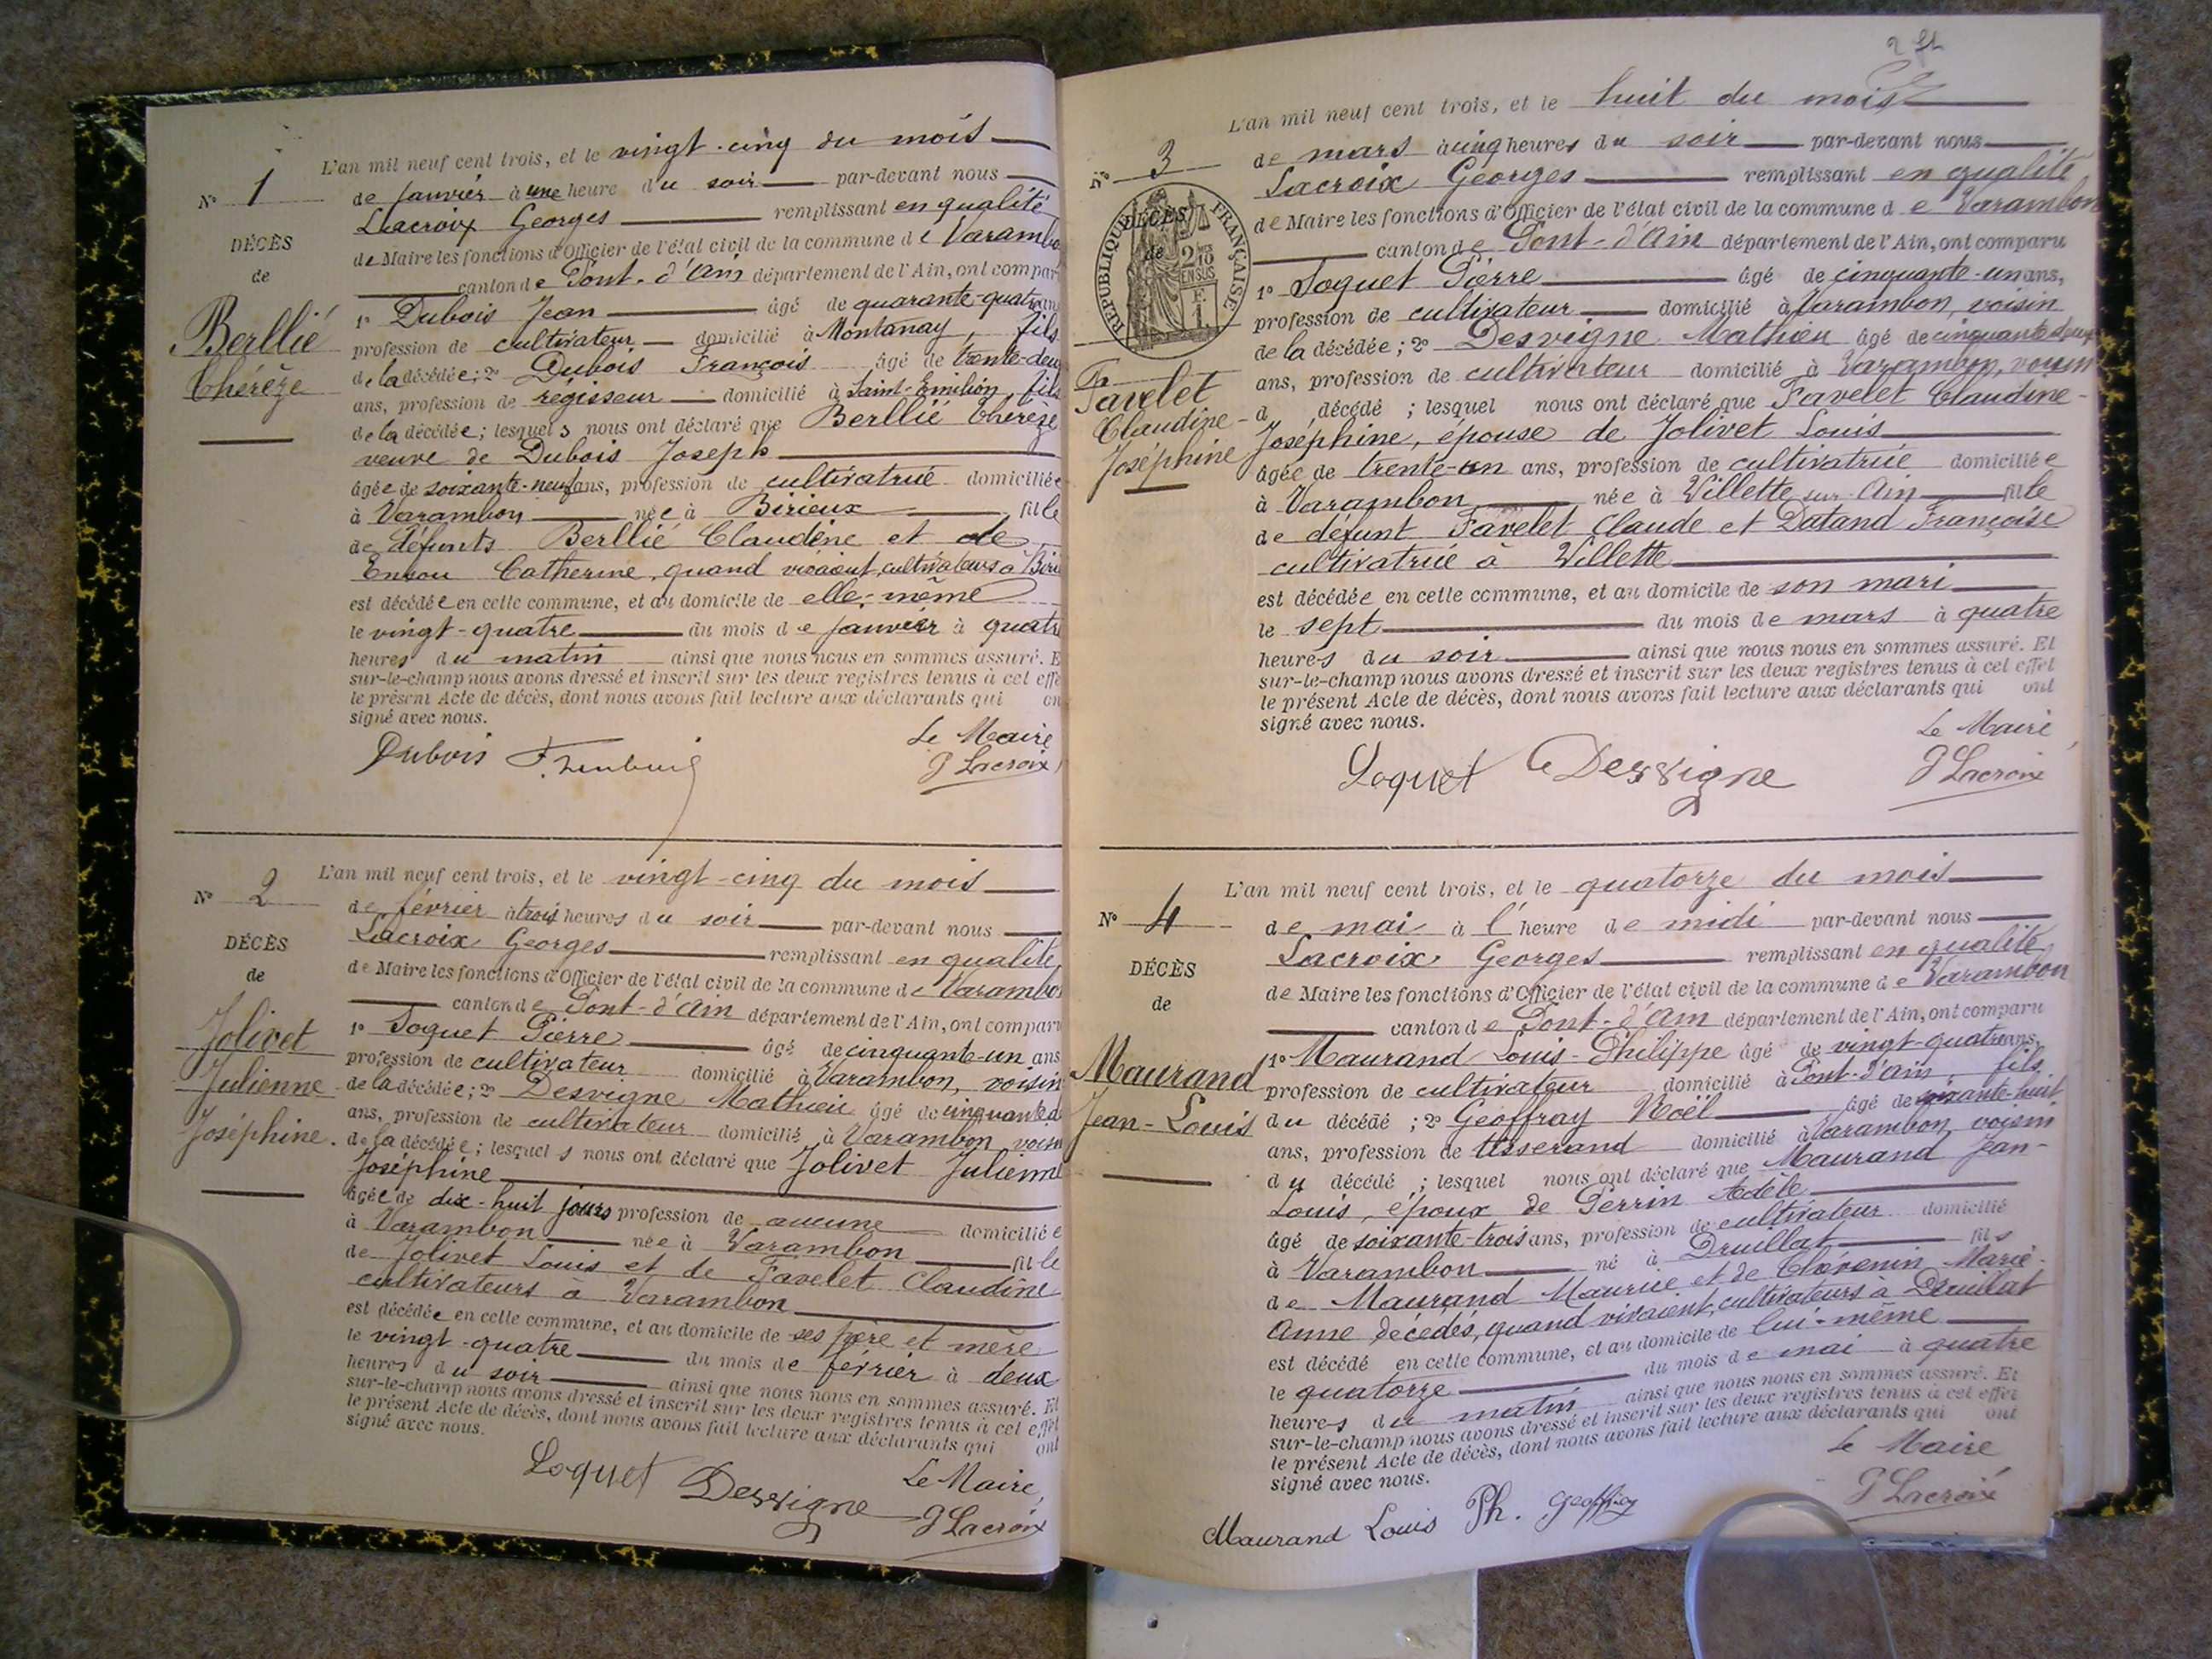 L'an mil neuf cent trois, et le vingt-cinq du mois
N° 1
de janvier à une heure du soir par-devant nous
Lacroix Georges remplissant en qualité
DÉCÈS
de Maire les fonctions d'Officier de l'état civil de la commune de Varambo
de
canton de Pont-d'Ain département de l'Ain, ont compar
Berllié
1° Dubois Jean âgé de quarante-quatre ans
profession de cultivateur domicilié à Montanay, fils
Thérèze
de la décédée; 2° Dubois François âgé de trente-deux
ans, profession de régisseur domicilié à Saint-Emilion, fils
de la décédée; lesquels nous ont déclaré que Berllié Thérèze
veuve de Dubois Joseph
âgée de soixante-neuf ans, profession de cultivatrice domiciliée
à Varambon née à Birieux fille
de défunts Berllié Claudine et de
Catherine, quand vivaient, cultivateurs à Biri
est décédée en cette commune, et au domicile de elle-même
le vingt-quatre du mois de janvier à quatre
heures du matin ainsi que nous nous en sommes assuré. E
sur-le-champ nous avons dressé et inscrit sur les deux registres tenus à cet effe
le présent Acte de décès, dont nous avons fait lecture aux déclarants qui on
signé avec nous.
Le Maire
Dubois
G Lacroix
L'an mil neuf cent trois, et le vingt-cinq du mois
N° 2
de février à trois heures du soir par-devant nous
Lacroix Georges remplissant en qualité
DÉCÈS
de Maire les fonctions d'Officier de l'état civil de la commune de Varambo
de
canton de Pont-d'Ain département de l'Ain, ont comparu
Jolivet
1° Loquet Pierre âgé de cinquante-un ans
profession de cultivateur domicilié à Varambon, voisin
Julienne
de la décédée; 2° Desvigne Mathieu âgé de cinquante d
ans, profession de cultivateur domicilié à Varambon voisin
Joséphine.
de la décédée; lesquels nous ont déclaré que Jolivet Julienne
Joséphine
âgée de dix-huit jours profession de aucune domiciliée
à Varambon née à Varambon fille
de Jolivet Louis et de Favelet Claudine
cultivateurs à Varambon
est décédée en cette commune, et au domicile de ses père et mère
le vingt-quatre du mois de février à deux
heures du soir ainsi que nous nous en sommes assuré. Et
sur-le-champ nous avons dressé et inscrit sur les deux registres tenus à cet effet
le présent Acte de décès, dont nous avons fait lecture aux déclarants qui ont
signé avec nous.
Loquet Desvigne Le Maire,
G Lacroix
L'an mil neuf cent trois, et le huit du mois
N° 3
de mars à cinq heures du soir par-devant nous
Lacroix Georges remplissant en qualité
RÉPUBLIQUE FRANÇAISE
DÉCÈS
de
2/10 EN SUS
de Maire les fonctions d'Officier de l'état civil de la commune de Varambon
canton de Pont-d'Ain département de l'Ain, ont comparu
1° Loquet Pierre âgé de cinquante-un ans,
profession de cultivateur domicilié à Varambon, voisin
de la décédée; 2° Desvigne Mathieu âgé de cinquante deux
Favelet
ans, profession de cultivateur domicilié à Varambon, voisin
Claudine-
d décédé ; lesquel nous ont déclaré que Favelet Claudine-
Joséphine
Joséphine, épouse de Jolivet Louis
âgée de trente-un ans, profession de cultivatrice domiciliée
à Varambon née à Villette sur Ain fille
de défunt Favelet Claude et Datand Françoise
cultivatrice à Villette
est décédée en cette commune, et au domicile de son mari
le sept du mois de mars à quatre
heures du soir ainsi que nous nous en sommes assuré. Et
sur-le-champ nous avons dressé et inscrit sur les deux registres tenus à cet effet
le présent Acte de décès, dont nous avons fait lecture aux déclarants qui ont
signé avec nous.
Le Maire,
Loquet Desvigne G Lacroix
L'an mil neuf cent trois, et le quatorze du mois
N° 4
de mai à l'heure de midi par-devant nous
Lacroix Georges remplissant en qualité
DÉCÈS
de Maire les fonctions d'Officier de l'état civil de la commune de Varambon
de
canton de Pont-d'Ain département de l'Ain, ont comparu
Maurand
1° Maurand Louis-Philippe âgé de vingt-quatre ans,
profession de cultivateur domicilié à Pont-d'Ain, fils
Jean-Louis
du décédé ; 2° Geoffray Noël âgé de soixante-huit
ans, profession de tisserand domicilié à Varambon, voisin
du décédé ; lesquel nous ont déclaré que Maurand Jean-
Louis, époux de Perrin Adèle
âgé de soixante-trois ans, profession de cultivateur domicilié
à Varambon né à Druillat fils
de Maurand Maurice et de Thévenin Marie-
Anne décédés, quand vivaient, cultivateurs à Druillat
est décédé en cette commune, et au domicile de lui-même
le quatorze du mois de mai à quatre
heures du matin ainsi que nous nous en sommes assuré. Et
sur-le-champ nous avons dressé et inscrit sur les deux registres tenus à cet effet
le présent Acte de décès, dont nous avons fait lecture aux déclarants qui ont
signé avec nous.
Le Maire
Maurand Louis Ph. Geoffray G Lacroix